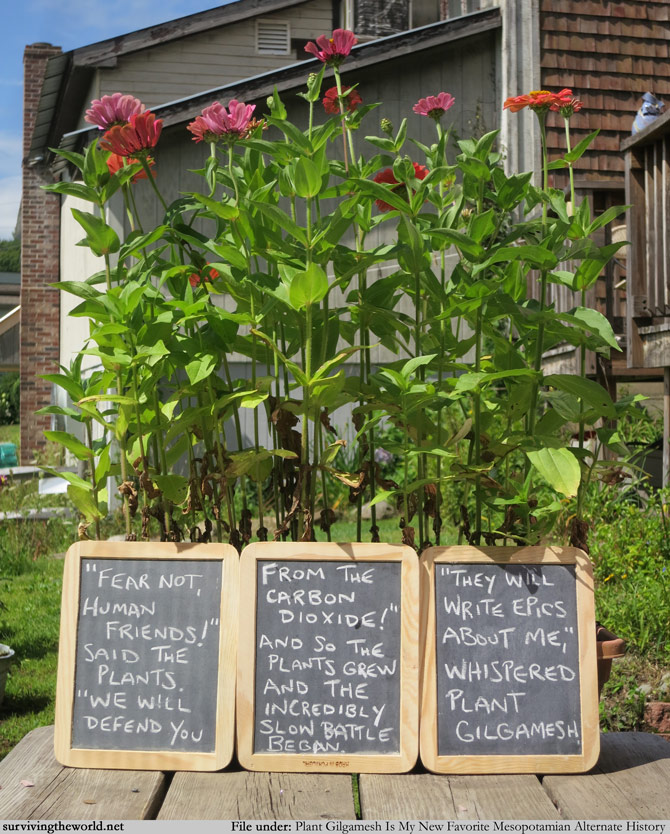 "FEAR NOT,
HUMAN
FRIENDS!"
SAID THE
PLANTS.
"WE WILL
DEFEND YOU
FROM THE
CARBON
DIOXIDE!"
AND SO THE
PLANTS GREW
AND THE
INCREDIBLY
SLOW BATTLE
BEGAN.
"THEY WILL
WRITE EPICS
ABOUT ME,"
WHISPERED
PLANT
GILGAMESH.
survivingtheworld.net
File under: Plant Gilgamesh Is My New Favorite Mesopotamian Alternate History